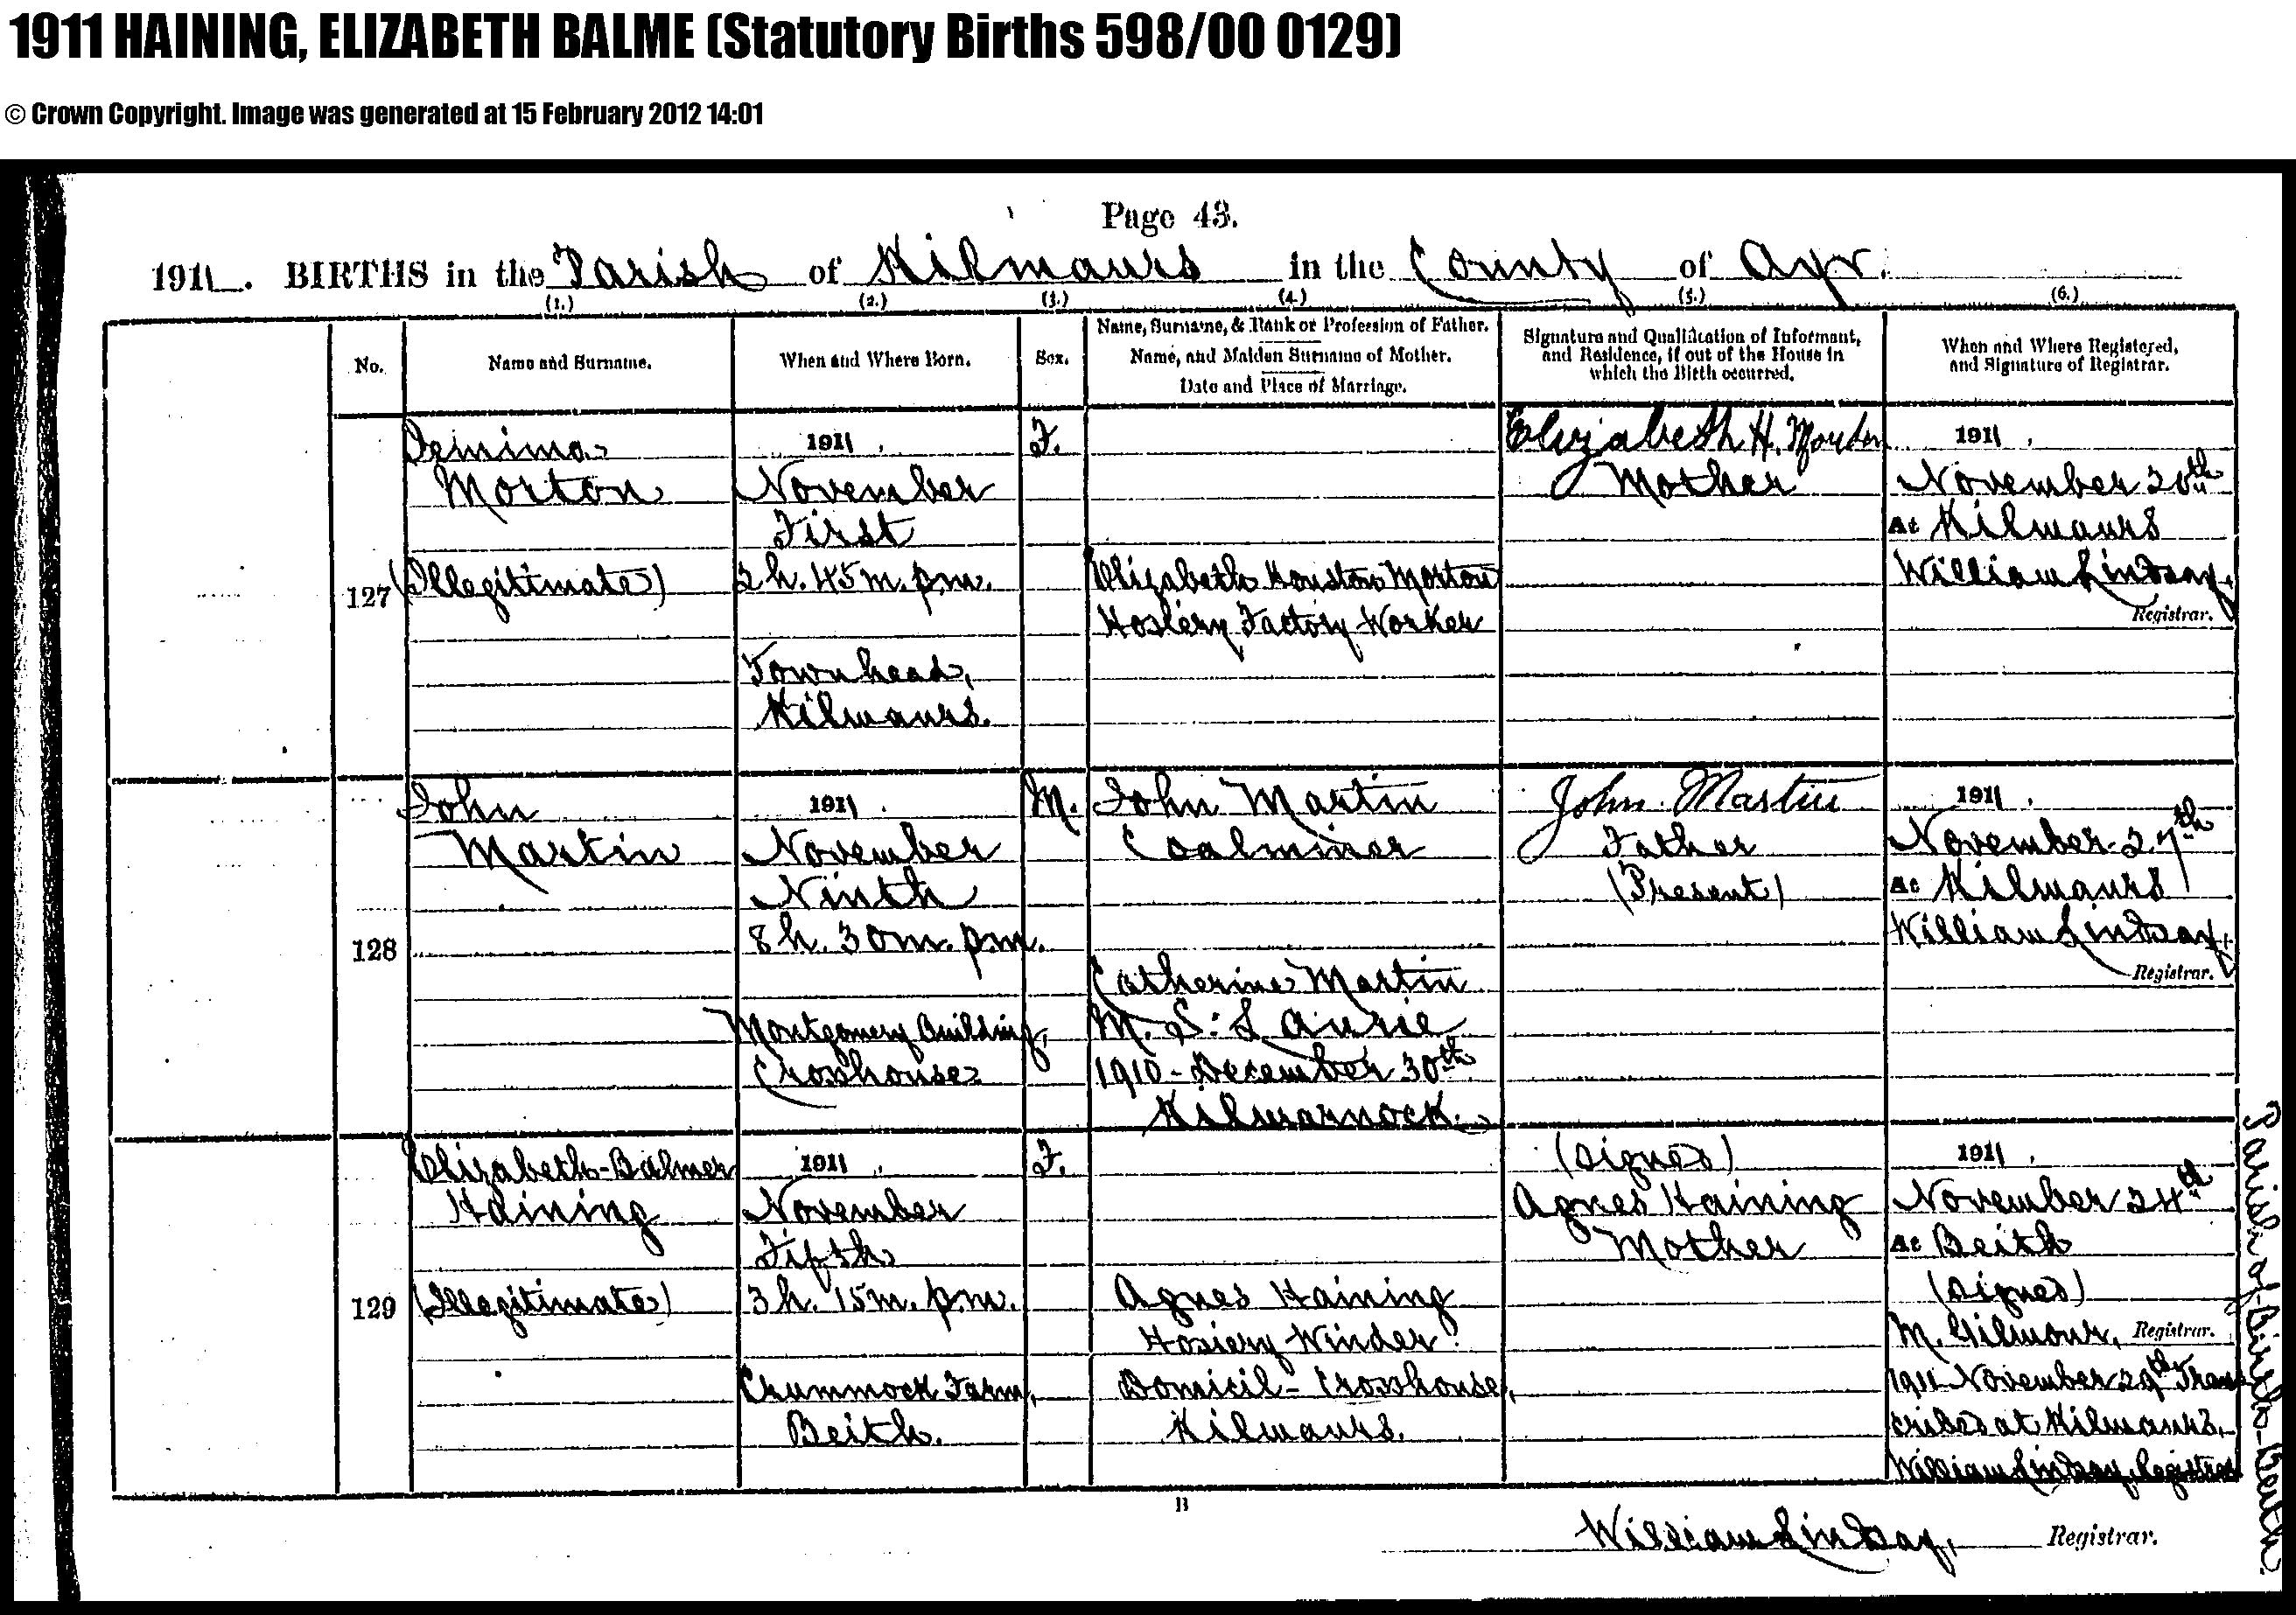 1911 HAINING, ELIZABETH BALME (Statutory Births 598/00 0129)
© Crown Copyright. Image was generated at 15 February 2012 14:01
Page 43.
1911. BIRTHS in the Parish of Kilmaurs in the County of Ayr.
(1.) (2.) (3.) (4.) (5.) (6.)
No.
Name and Surname.
When and Where Born.
Sex.
Name, Surname, & Rank or Profession of Father.
Name, and Maiden Surname of Mother.
Date and Place of Marriage.
Signature and Qualification of Informant,
and Residence, if out of the House in
which the Birth occurred.
When and Where Registered,
and Signature of Registrar.
127
Jemima
Morton
(Illegitimate)
1911.
November
First
2h. 45m. p.m.
Townhead,
Kilmaurs.
F.
Elizabeth Houston Morton
Hosiery Factory Worker
Elizabeth H. Morton
Mother
1911.
November 20th
At Kilmaurs
William Lindsay,
Registrar.
128
John
Martin
1911.
November
Ninth
8h. 30m. p.m.
Montgomery Building,
Crosshouse
M.
John Martin
Coalminer
Catherine Martin
M.S. Laurie
1910 - December 30th
Kilmarnock.
John Martin
Father
(Present)
1911.
November 27th
At Kilmaurs
William Lindsay,
Registrar.
129
Elizabeth-Balmer
Haining
(Illegitimate)
1911.
November
Fifth
3h. 15m. p.m.
Crummock Farm,
Beith.
F.
Agnes Haining
Hosiery Winder
Domicil - Crosshouse,
Kilmaurs.
(Signed)
Agnes Haining
Mother
1911.
November 24th
At Beith
(Signed)
M. Gilmour, Registrar.
1911 November 29th Trans
cribed at Kilmaurs.
William Lindsay, Registrar
Parish of Birth - Beith.
B
William Lindsay, Registrar.